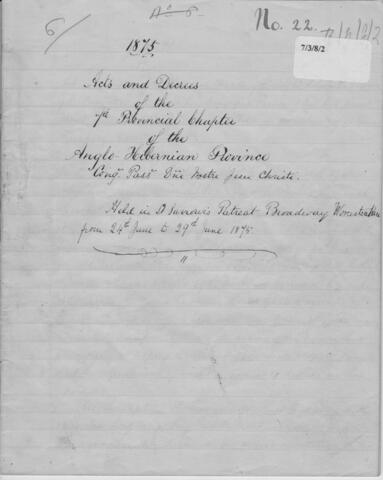 6/
No. 22.
7/3/8/2
1875
Acts and Decrees
of the
7th Provincial Chapter
of the
Anglo-Hibernian Province
Congn. Pass. Dni Nostri Jesu Christi.
Held in St Saviour's Retreat Broadway Worcestershire
from 24th June to 29th June 1875.